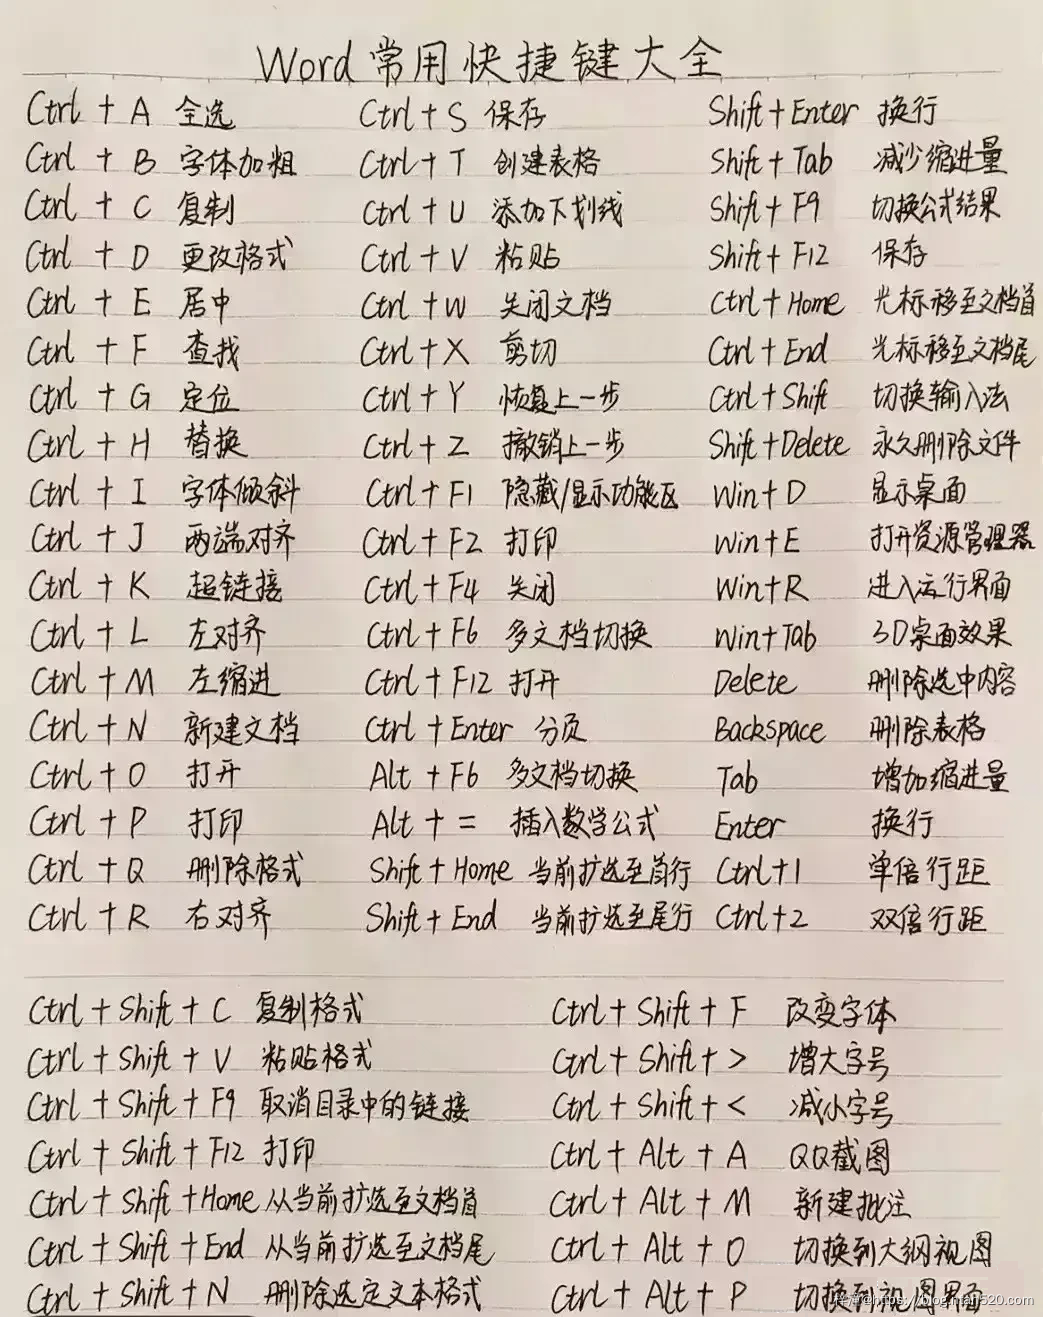 Word常用快捷键大全
Ctrl + A 全选 Ctrl + S 保存 Shift + Enter 换行
Ctrl + B 字体加粗 Ctrl + T 创建表格 Shift + Tab 减少缩进量
Ctrl + C 复制 Ctrl + U 添加下划线 Shift + F9 切换公式结果
Ctrl + D 更改格式 Ctrl + V 粘贴 Shift + F12 保存
Ctrl + E 居中 Ctrl + W 关闭文档 Ctrl + Home 光标移至文档首
Ctrl + F 查找 Ctrl + X 剪切 Ctrl + End 光标移至文档尾
Ctrl + G 定位 Ctrl + Y 恢复上一步 Ctrl + Shift 切换输入法
Ctrl + H 替换 Ctrl + Z 撤销上一步 Shift + Delete 永久删除文件
Ctrl + I 字体倾斜 Ctrl + F1 隐藏/显示功能区 Win + D 显示桌面
Ctrl + J 两端对齐 Ctrl + F2 打印 Win + E 打开资源管理器
Ctrl + K 超链接 Ctrl + F4 关闭 Win + R 进入运行界面
Ctrl + L 左对齐 Ctrl + F6 多文档切换 Win + Tab 3D桌面效果
Ctrl + M 左缩进 Ctrl + F12 打开 Delete 删除选中内容
Ctrl + N 新建文档 Ctrl + Enter 分页 Backspace 删除表格
Ctrl + O 打开 Alt + F6 多文档切换 Tab 增加缩进量
Ctrl + P 打印 Alt + = 插入数学公式 Enter 换行
Ctrl + Q 删除格式 Shift + Home 当前扩选至首行 Ctrl + 1 单倍行距
Ctrl + R 右对齐 Shift + End 当前扩选至尾行 Ctrl + 2 双倍行距
Ctrl + Shift + C 复制格式 Ctrl + Shift + F 改变字体
Ctrl + Shift + V 粘贴格式 Ctrl + Shift + > 增大字号
Ctrl + Shift + F9 取消目录中的链接 Ctrl + Shift + < 减小字号
Ctrl + Shift + F12 打印 Ctrl + Alt + A QQ截图
Ctrl + Shift + Home 从当前扩选至文档首 Ctrl + Alt + M 新建批注
Ctrl + Shift + End 从当前扩选至文档尾 Ctrl + Alt + O 切换到大纲视图
Ctrl + Shift + N 删除选定文本格式 Ctrl + Alt + P 切换到视图界面
@https://blog.ntan520.com